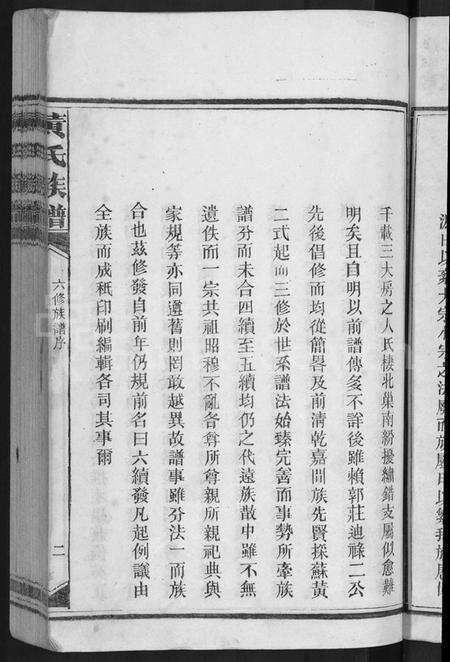 千載三大房之人氏棲北巢南紛擾繡錯支屬似愈難
明矣且自明以前譜傳多不詳後雖賴郭莊迪祿二公
先後倡修而均從簡畧及前清乾嘉間族先賢採蘇黃
二式起而三修於世系譜法始臻完善而事勢所牽族
譜分而未合四續至五續均仍之代遠族散中雖不無
遺佚而一宗共祖昭穆不亂各尊所尊親所親祀典與
家規等亦同遵舊則罔敢越異故譜事雖分法一而族
合也茲修發自前年仍規前名曰六續發凡起例議由
全族而成秪印刷編輯各司其事爾
黃氏族譜
六修族譜序
二